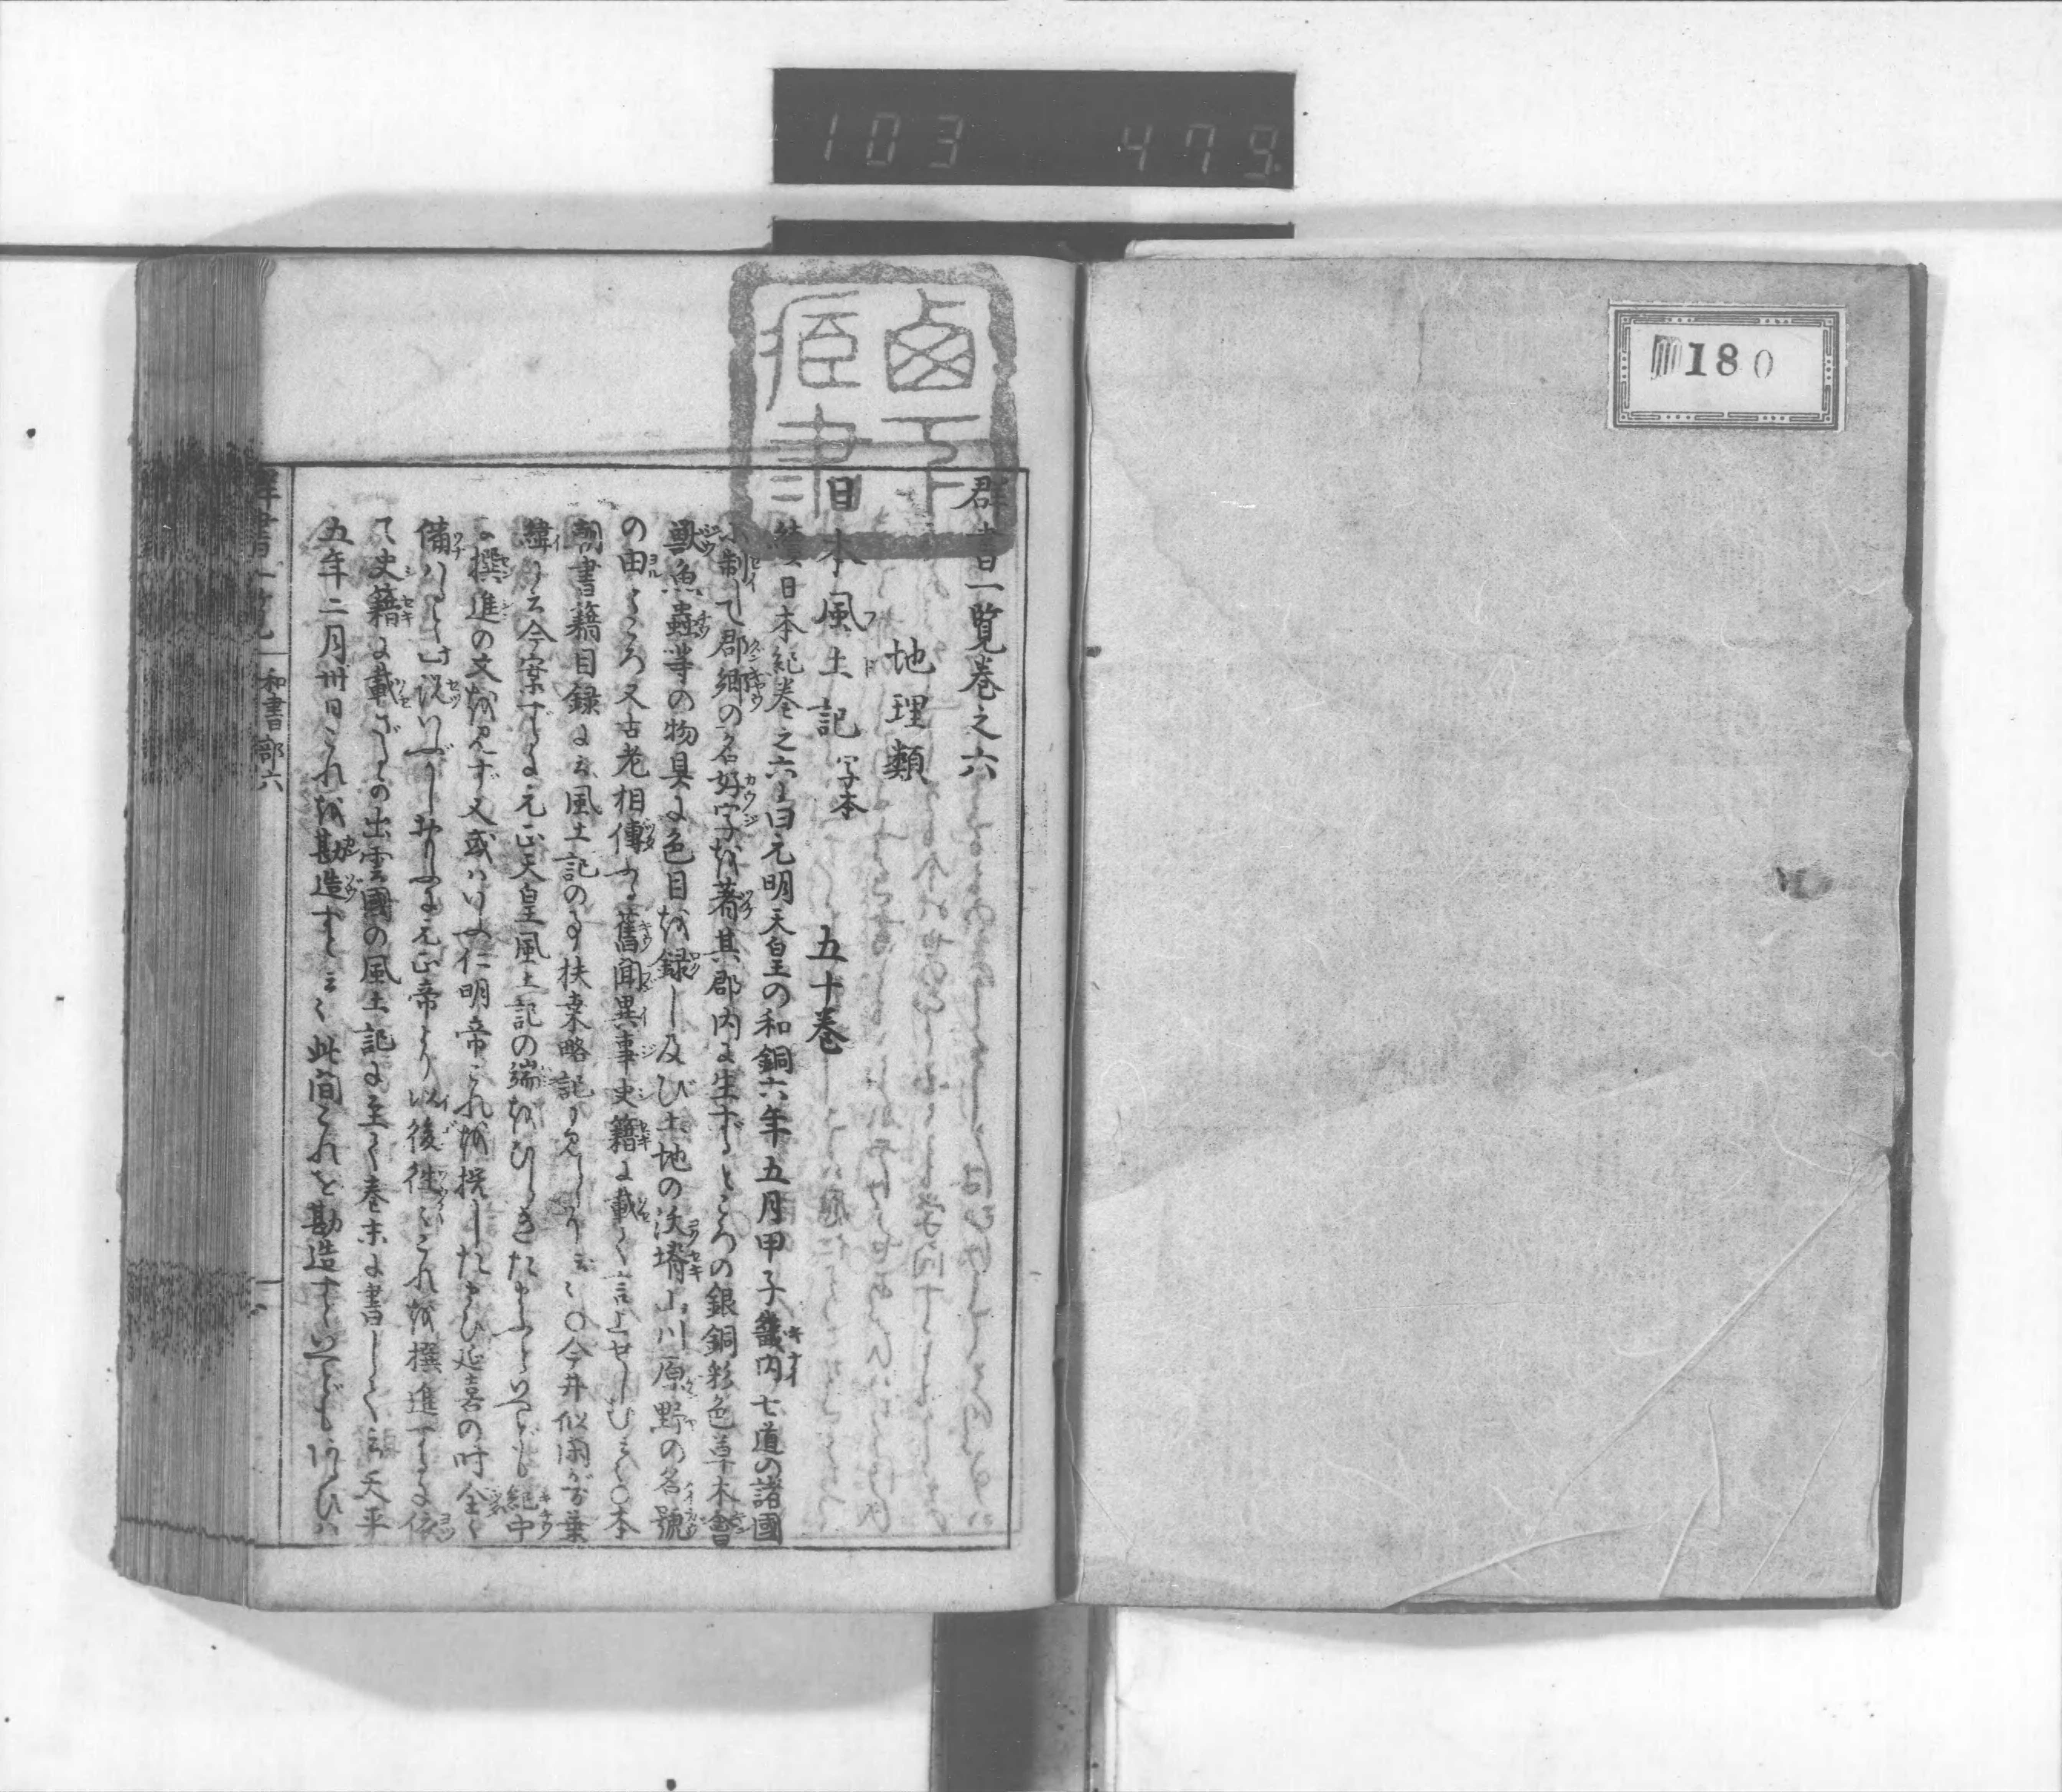 103 479
180
群書一覧巻之六
地理類
日本風土記 写本 五十巻
續日本紀巻之六に曰元明天皇の和銅六年五月甲子畿内七道の諸國
に制して郡郷の名好字を著其郡内に生ずるところの銀銅彩色草木禽
獣魚蟲等の物具に色目を録し及び土地の沃塉山川原野の名號
の由ところ又古老相傳ふる舊聞異事史籍に載て言上せしむと云々○本
朝書籍目録に云風土記の事扶桒略記に見えたりと云々○今井似閑が萬葉
緯に云今案ずるに元正天皇風土記の端をひらきたまふといへども紀中
に撰進の文を見ず又或はいふ仁明帝これを撰したまひ延喜の时全く
備はると此説いぶかし おもふに元正帝より以後往々これを撰進するに依
て史籍に載ざるの出雲國の風土記に至て巻末に書して云天平
五年二月卅日これを勘造すと云々此間これを勘造すといへども
群書一覧 和書部六